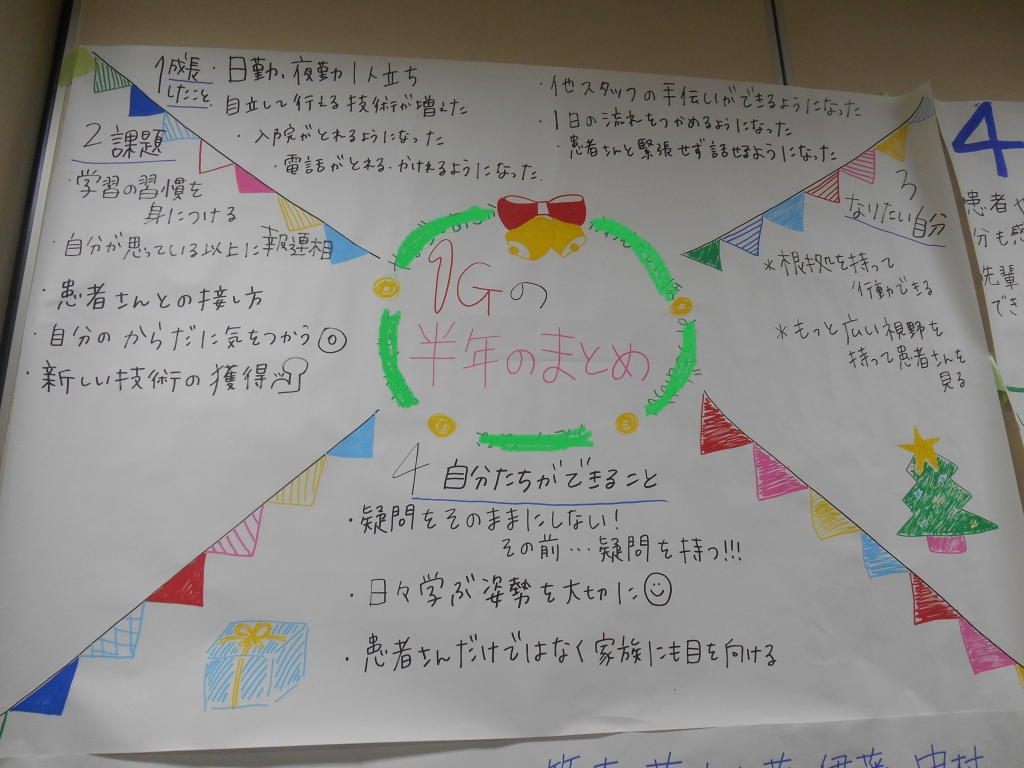 1 成長したこと
・日勤、夜勤1人立ち
自立して行える技術が増えた
・入院がとれるようになった
・電話がとれる・かけれるようになった.
・他スタッフの手伝いができるようになった
・1日の流れをつかめるようになった
・患者さんと緊張せず話せるようになった
2 課題
・学習の習慣を
身につける
・自分が思っている以上に報連相
・患者さんとの接し方
・自分のからだに気をつかう
・新しい技術の獲得
1Gの
半年のまとめ
3
なりたい自分
*根拠を持って
行動できる
*もっと広い視野を
持って患者さんを
見る
4 自分たちができること
・疑問をそのままにしない!
その前…疑問を持つ!!!
・日々学ぶ姿勢を大切に
・患者さんだけではなく家族にも目を向ける
4
患者や
分も
先輩
でき